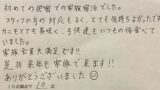 初めての民宿での家族宿泊でした。
スタッフの方の対応もよく、とても気持ちよかったです。
カニもとても美味で、子供達もいつもの倍食べて
いました。
家族全員大満足です!!
是非来年も家族で来ます!!
ありがとうございました☺
10点満点で 10 点